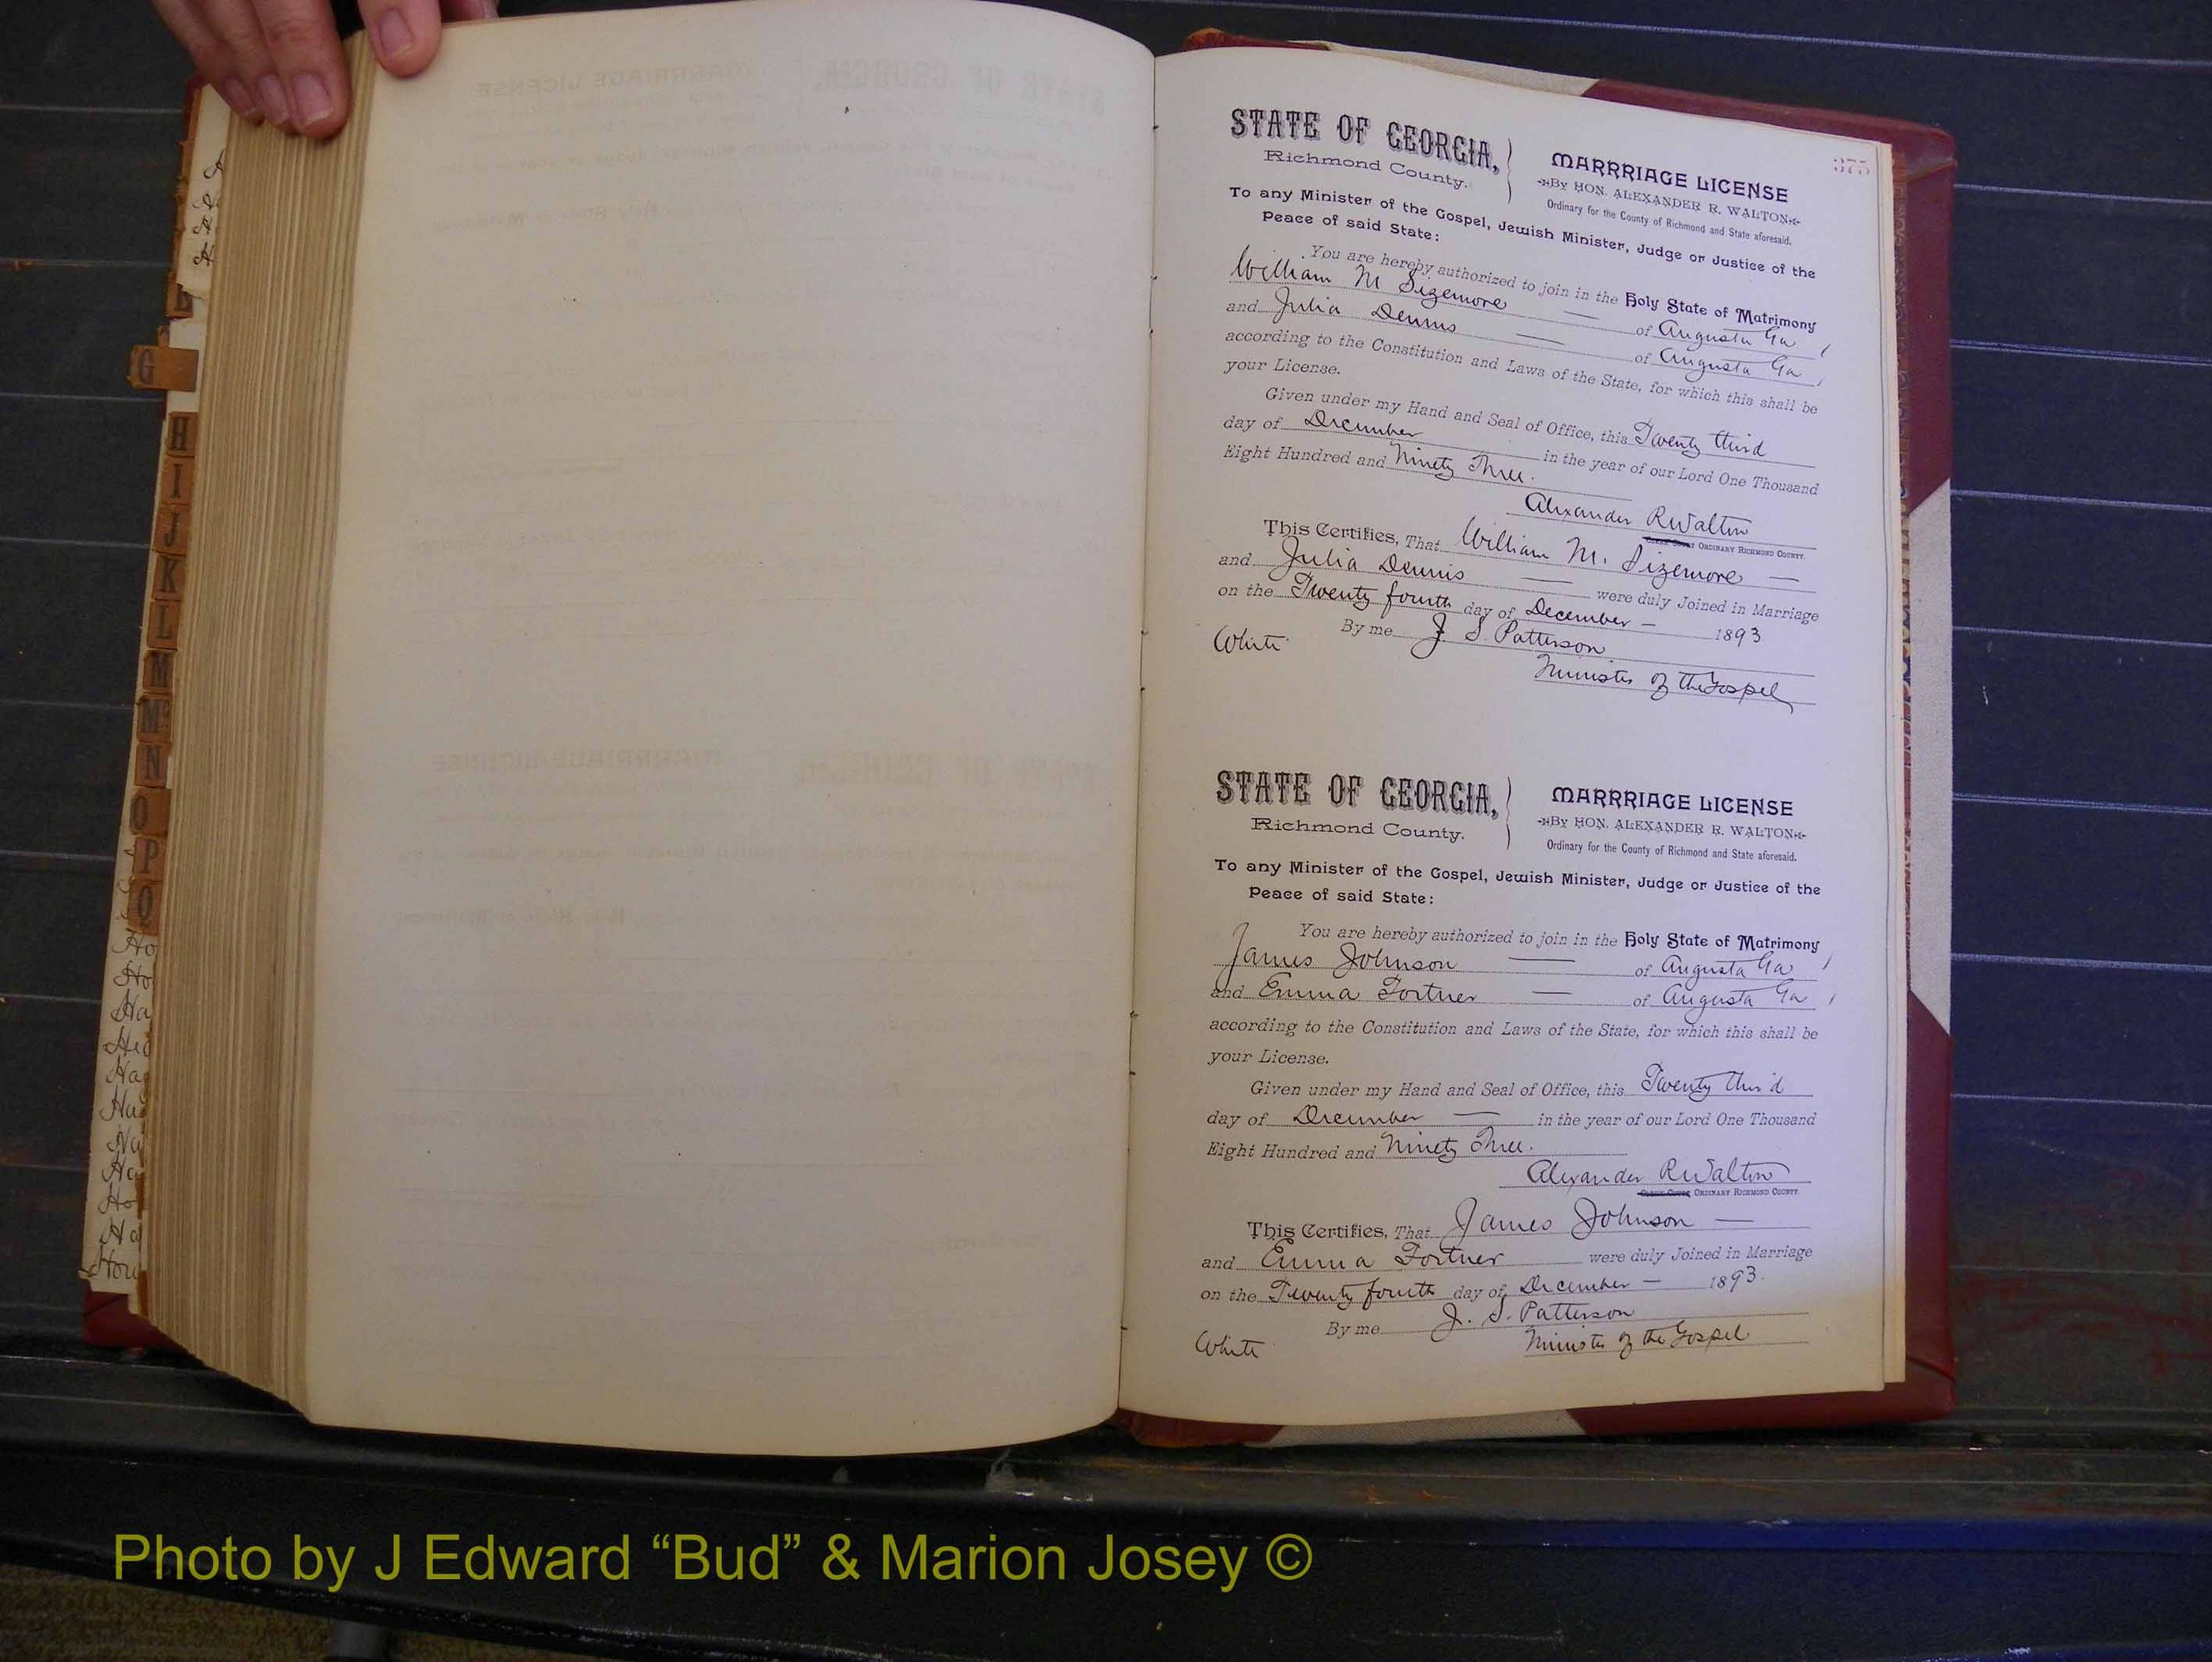 375
STATE OF GEORGIA,
Richmond County.
MARRRIAGE LICENSE
By HON. ALEXANDER R. WALTON
Ordinary for the County of Richmond and State aforesaid.
To any Minister of the Gospel, Jewish Minister, Judge or Justice of the
Peace of said State:
You are hereby authorized to join in the Holy State of Matrimony
William M Sizemore — of Augusta Ga
and Julia Dennis — of Augusta Ga
according to the Constitution and Laws of the State, for which this shall be
your License.
Given under my Hand and Seal of Office, this Twenty third
day of December in the year of our Lord One Thousand
Eight Hundred and Ninety Three.
Alexander R Walton
ORDINARY RICHMOND COUNTY.
This Certifies, That William M. Sizemore —
and Julia Dennis — were duly Joined in Marriage
on the Twenty fourth day of December — 1893
By me J. S. Patterson
White
Minister of the Gospel
STATE OF GEORGIA,
Richmond County.
MARRRIAGE LICENSE
By HON. ALEXANDER R. WALTON
Ordinary for the County of Richmond and State aforesaid.
To any Minister of the Gospel, Jewish Minister, Judge or Justice of the
Peace of said State:
You are hereby authorized to join in the Holy State of Matrimony
James Johnson — of Augusta Ga
and Emma Fortner — of Augusta Ga
according to the Constitution and Laws of the State, for which this shall be
your License.
Given under my Hand and Seal of Office, this Twenty third
day of December — in the year of our Lord One Thousand
Eight Hundred and Ninety Three.
Alexander R Walton
ORDINARY RICHMOND COUNTY.
This Certifies, That James Johnson —
and Emma Fortner were duly Joined in Marriage
on the Twenty fourth day of December — 1893.
By me J. S. Patterson
White
Minister of the Gospel
G
H
I
J
K
L
M
Mc
N
O
P
Q
Photo by J Edward “Bud” & Marion Josey ©